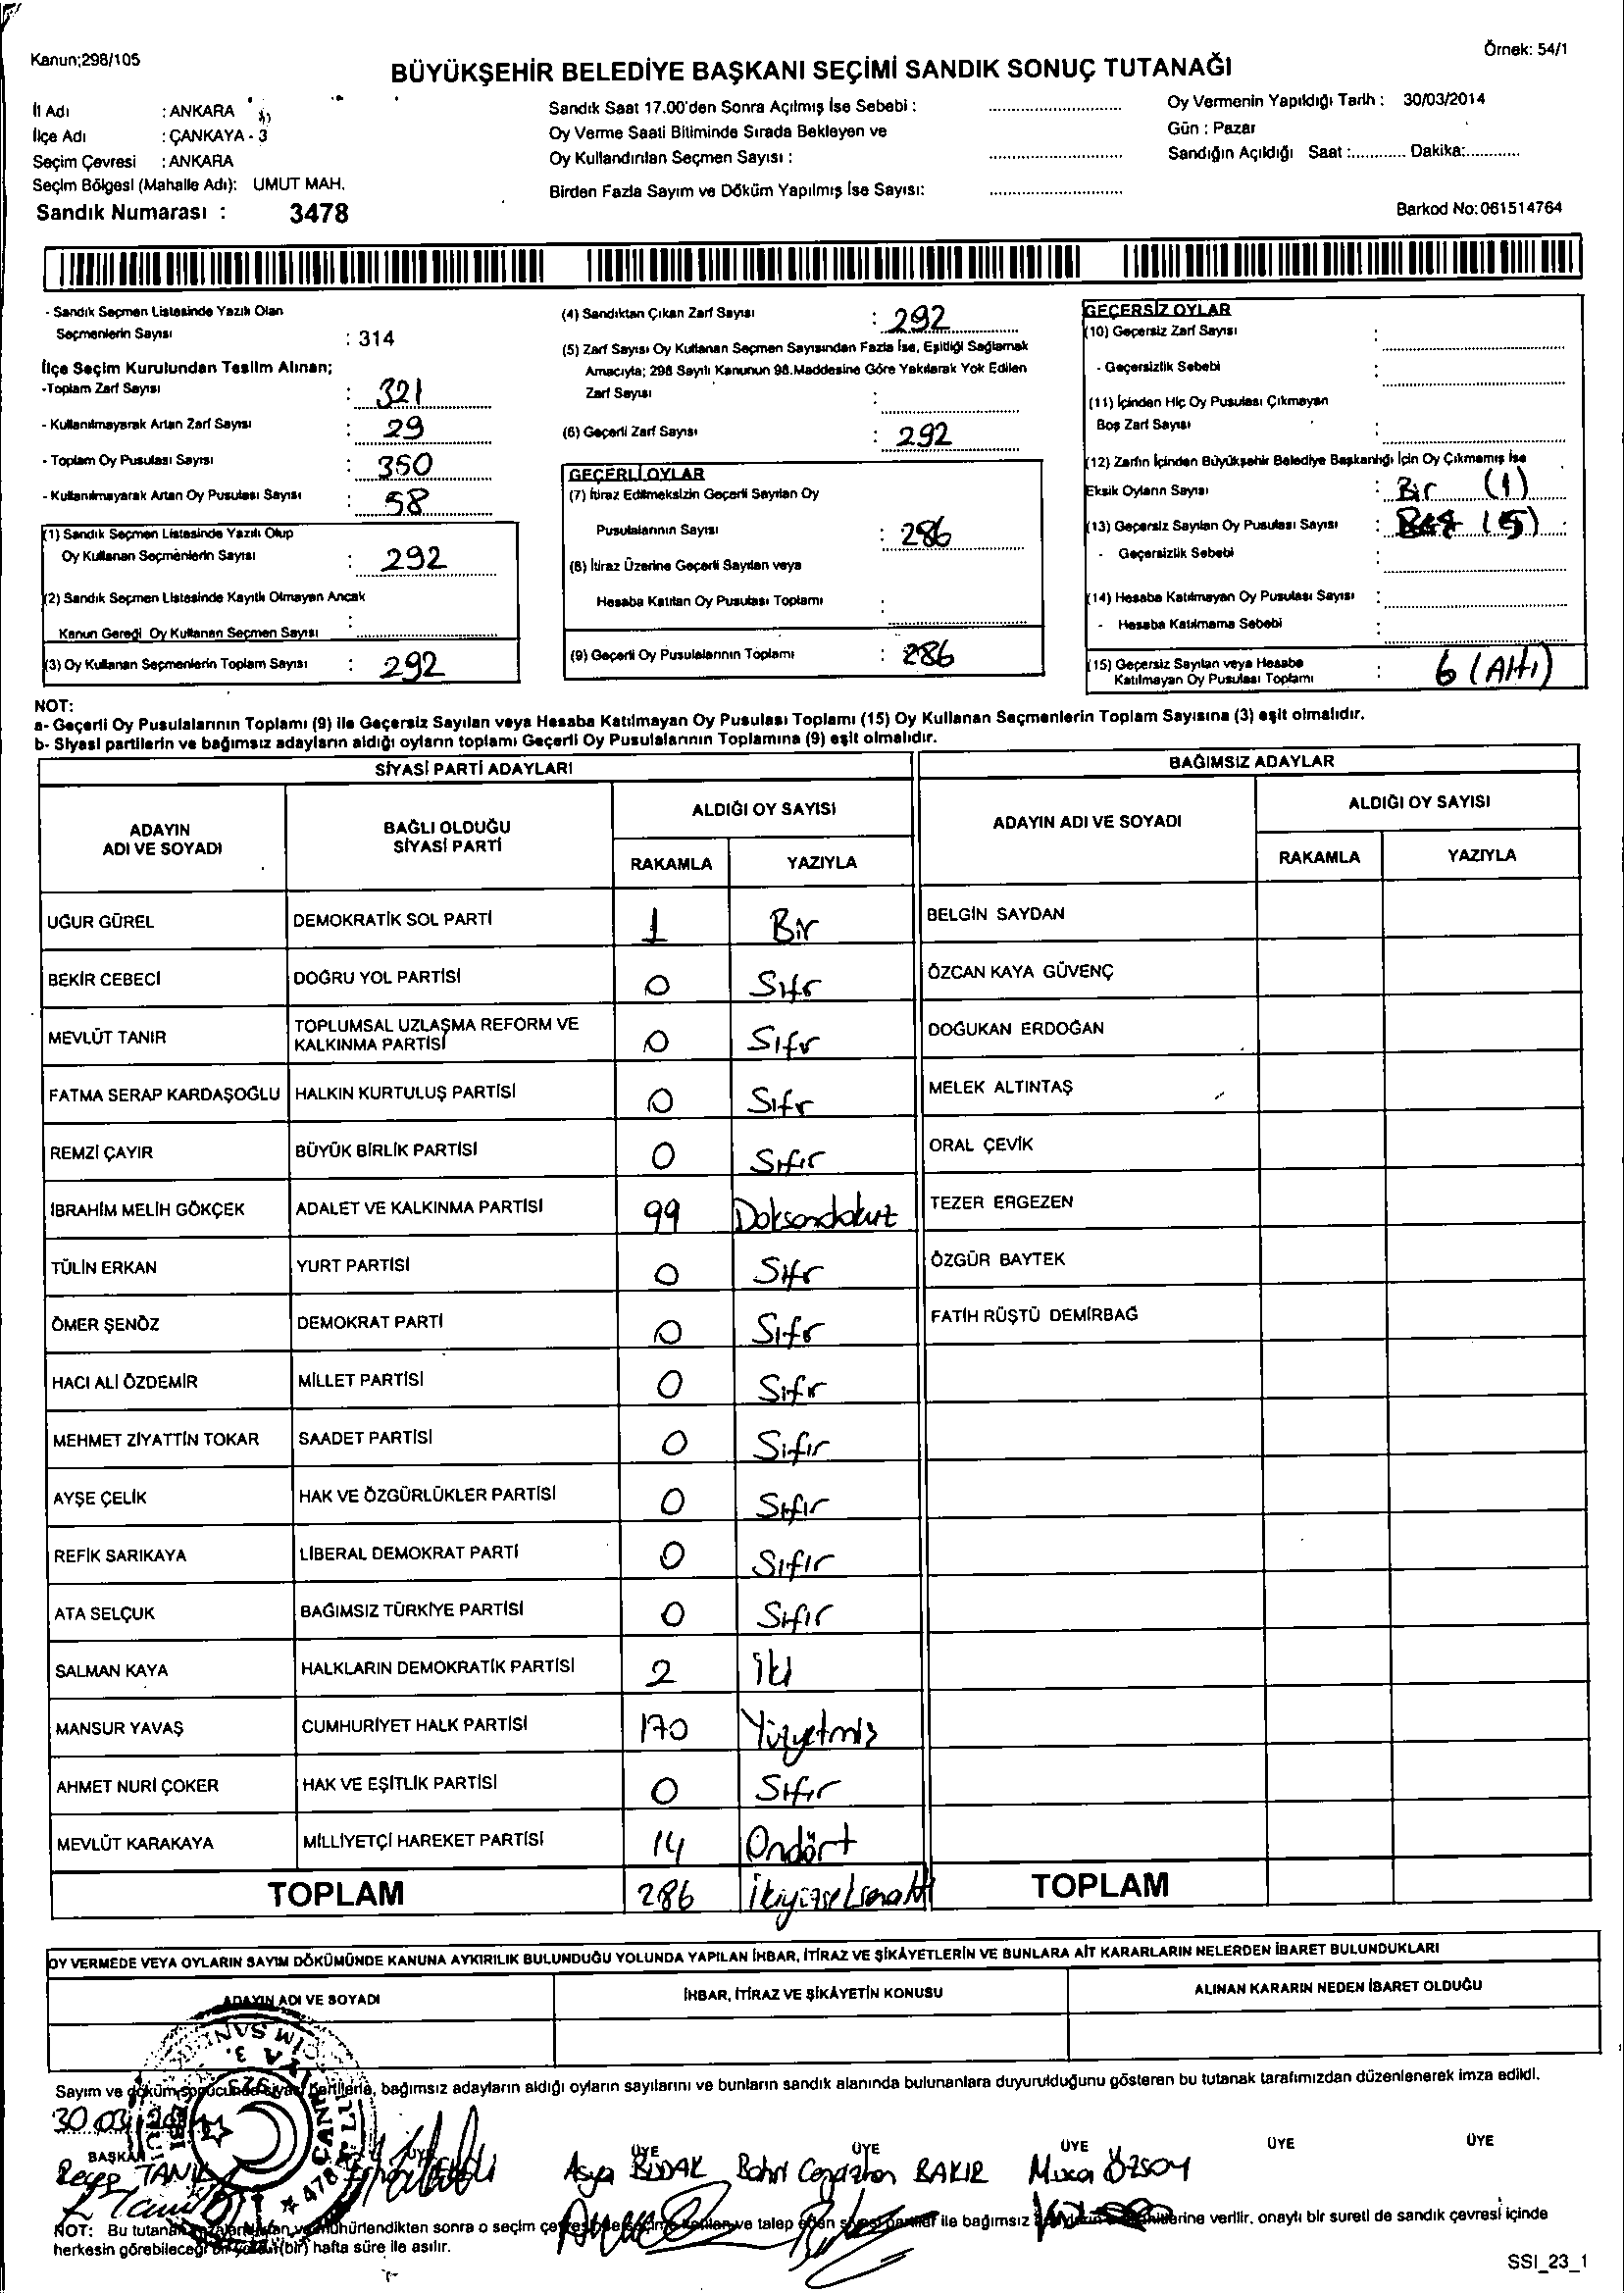 Kanun;298/105
Örnek: 54/1
BÜYÜKŞEHİR BELEDİYE BAŞKANI SEÇİMİ SANDIK SONUÇ TUTANAĞI
İl Adı : ANKARA
İlçe Adı : ÇANKAYA - 3
Seçim Çevresi : ANKARA
Seçim Bölgesi (Mahalle Adı): UMUT MAH.
Sandık Numarası : 3478
Sandık Saat 17.00'den Sonra Açılmış İse Sebebi :
Oy Verme Saati Bitiminde Sırada Bekleyen ve
Oy Kullandırılan Seçmen Sayısı :
Birden Fazla Sayım ve Döküm Yapılmış İse Sayısı:
Oy Vermenin Yapıldığı Tarih : 30/03/2014
Gün : Pazar
Sandığın Açıldığı Saat :............ Dakika:............
Barkod No:061514764
- Sandık Seçmen Listesinde Yazılı Olan
Seçmenlerin Sayısı : 314
İlçe Seçim Kurulundan Teslim Alınan;
-Toplam Zarf Sayısı : 321
- Kullanılmayarak Artan Zarf Sayısı : 29
- Toplam Oy Pusulası Sayısı : 350
- Kullanılmayarak Artan Oy Pusulası Sayısı : 58
(1) Sandık Seçmen Listesinde Yazılı Olup
Oy Kullanan Seçmenlerin Sayısı : 292
(2) Sandık Seçmen Listesinde Kayıtlı Olmayan Ancak
Kanun Gereği Oy Kullanan Seçmen Sayısı :
(3) Oy Kullanan Seçmenlerin Toplam Sayısı : 292
(4) Sandıktan Çıkan Zarf Sayısı : 292
(5) Zarf Sayısı Oy Kullanan Seçmen Sayısından Fazla İse, Eşitliği Sağlamak
Amacıyla; 298 Sayılı Kanunun 98.Maddesine Göre Yakılarak Yok Edilen
Zarf Sayısı :
(6) Geçerli Zarf Sayısı : 292
GEÇERLİ OYLAR
(7) İtiraz Edilmeksizin Geçerli Sayılan Oy
Pusulalarının Sayısı : 286
(8) İtiraz Üzerine Geçerli Sayılan veya
Hesaba Katılan Oy Pusulası Toplamı :
(9) Geçerli Oy Pusulalarının Toplamı : 286
GEÇERSİZ OYLAR
(10) Geçersiz Zarf Sayısı :
- Geçersizlik Sebebi :
(11) İçinden Hiç Oy Pusulası Çıkmayan
Boş Zarf Sayısı :
(12) Zarfın İçinden Büyükşehir Belediye Başkanlığı İçin Oy Çıkmamış İse
Eksik Oyların Sayısı : Bir (1)
(13) Geçersiz Sayılan Oy Pusulası Sayısı : (5)
- Geçersizlik Sebebi :
(14) Hesaba Katılmayan Oy Pusulası Sayısı :
- Hesaba Katılmama Sebebi :
(15) Geçersiz Sayılan veya Hesaba
Katılmayan Oy Pusulası Toplamı : 6 (Altı)
NOT:
a- Geçerli Oy Pusulalarının Toplamı (9) ile Geçersiz Sayılan veya Hesaba Katılmayan Oy Pusulası Toplamı (15) Oy Kullanan Seçmenlerin Toplam Sayısına (3) eşit olmalıdır.
b- Siyasi partilerin ve bağımsız adayların aldığı oyların toplamı Geçerli Oy Pusulalarının Toplamına (9) eşit olmalıdır.
SİYASİ PARTİ ADAYLARI
ADAYIN ADI VE SOYADI
BAĞLI OLDUĞU SİYASİ PARTİ
ALDIĞI OY SAYISI
RAKAMLA YAZIYLA
UĞUR GÜREL DEMOKRATİK SOL PARTİ 1 Bir
BEKİR CEBECİ DOĞRU YOL PARTİSİ 0 Sıfr
MEVLÜT TANIR TOPLUMSAL UZLAŞMA REFORM VE KALKINMA PARTİSİ 0 Sıfr
FATMA SERAP KARDAŞOĞLU HALKIN KURTULUŞ PARTİSİ 0 Sıfr
REMZİ ÇAYIR BÜYÜK BİRLİK PARTİSİ 0 Sıfır
İBRAHİM MELİH GÖKÇEK ADALET VE KALKINMA PARTİSİ 99 Doksandokuz
TÜLİN ERKAN YURT PARTİSİ 0 Sıfr
ÖMER ŞENÖZ DEMOKRAT PARTİ 0 Sıfr
HACI ALİ ÖZDEMİR MİLLET PARTİSİ 0 Sıfr
MEHMET ZİYATTİN TOKAR SAADET PARTİSİ 0 Sıfır
AYŞE ÇELİK HAK VE ÖZGÜRLÜKLER PARTİSİ 0 Sıfır
REFİK SARIKAYA LİBERAL DEMOKRAT PARTİ 0 Sıfır
ATA SELÇUK BAĞIMSIZ TÜRKİYE PARTİSİ 0 Sıfır
SALMAN KAYA HALKLARIN DEMOKRATİK PARTİSİ 2 iki
MANSUR YAVAŞ CUMHURİYET HALK PARTİSİ 170 Yüzyetmiş
AHMET NURİ ÇOKER HAK VE EŞİTLİK PARTİSİ 0 Sıfır
MEVLÜT KARAKAYA MİLLİYETÇİ HAREKET PARTİSİ 14 Ondört
TOPLAM 286 ikiyüzseksenaltı
BAĞIMSIZ ADAYLAR
ADAYIN ADI VE SOYADI
ALDIĞI OY SAYISI
RAKAMLA YAZIYLA
BELGİN SAYDAN
ÖZCAN KAYA GÜVENÇ
DOĞUKAN ERDOĞAN
MELEK ALTINTAŞ
ORAL ÇEVİK
TEZER ERGEZEN
ÖZGÜR BAYTEK
FATİH RÜŞTÜ DEMİRBAĞ
TOPLAM
OY VERMEDE VEYA OYLARIN SAYIM DÖKÜMÜNDE KANUNA AYKIRILIK BULUNDUĞU YOLUNDA YAPILAN İHBAR, İTİRAZ VE ŞİKÂYETLERİN VE BUNLARA AİT KARARLARIN NELERDEN İBARET BULUNDUKLARI
ADAYIN ADI VE SOYADI
İHBAR, İTİRAZ VE ŞİKÂYETİN KONUSU
ALINAN KARARIN NEDEN İBARET OLDUĞU
Sayım ve döküm sonucunda siyasi partilerle, bağımsız adayların aldığı oyların sayılarını ve bunların sandık alanında bulunanlara duyurulduğunu gösteren bu tutanak tarafımızdan düzenlenerek imza edildi.
30.03
BAŞKAN ÜYE ÜYE ÜYE ÜYE ÜYE ÜYE
Recep Asya BUDAK Bahri BAKIR ÖZSOY
NOT: Bu tutanak mühürlendikten sonra o seçim ve talep eden siyasi partiler ile bağımsız verilir, onaylı bir sureti de sandık çevresi içinde
herkesin görebileceği bir (bir) hafta süre ile asılır.
SSI_23_1